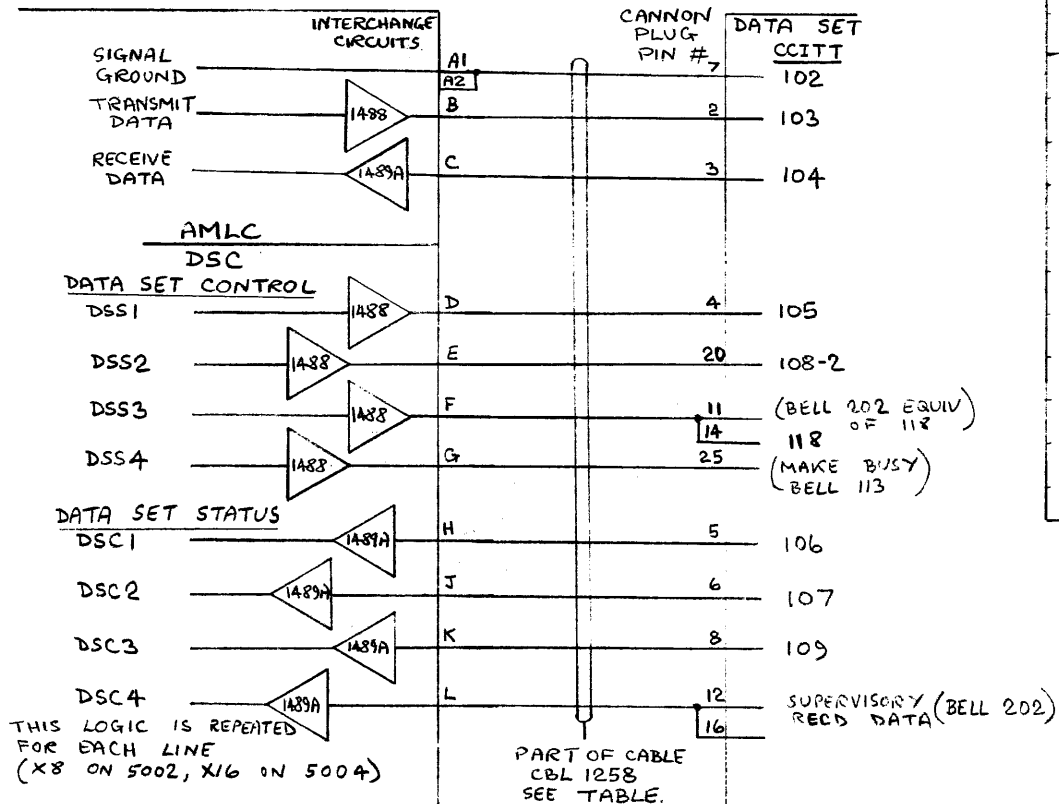 INTERCHANGE
CIRCUITS
CANNON
PLUG
PIN #
DATA SET
CCITT
SIGNAL
GROUND
A1
A2
7
102
TRANSMIT
DATA
1488
B
2
103
RECEIVE
DATA
1489A
C
3
104
AMLC
DSC
DATA SET CONTROL
DSS1
1488
D
4
105
DSS2
1488
E
20
108-2
DSS3
1488
F
11
(BELL 202 EQUIV
OF 118)
14
118
DSS4
1488
G
25
(MAKE BUSY)
BELL 113
DATA SET STATUS
DSC1
1489A
H
5
106
DSC2
1489A
J
6
107
DSC3
1489A
K
8
109
DSC4
1489A
L
12
16
SUPERVISORY (BELL 202)
RECD DATA
THIS LOGIC IS REPEATED
FOR EACH LINE
(X8 ON 5002, X16 ON 5004)
PART OF CABLE
CBL 1258
SEE TABLE.